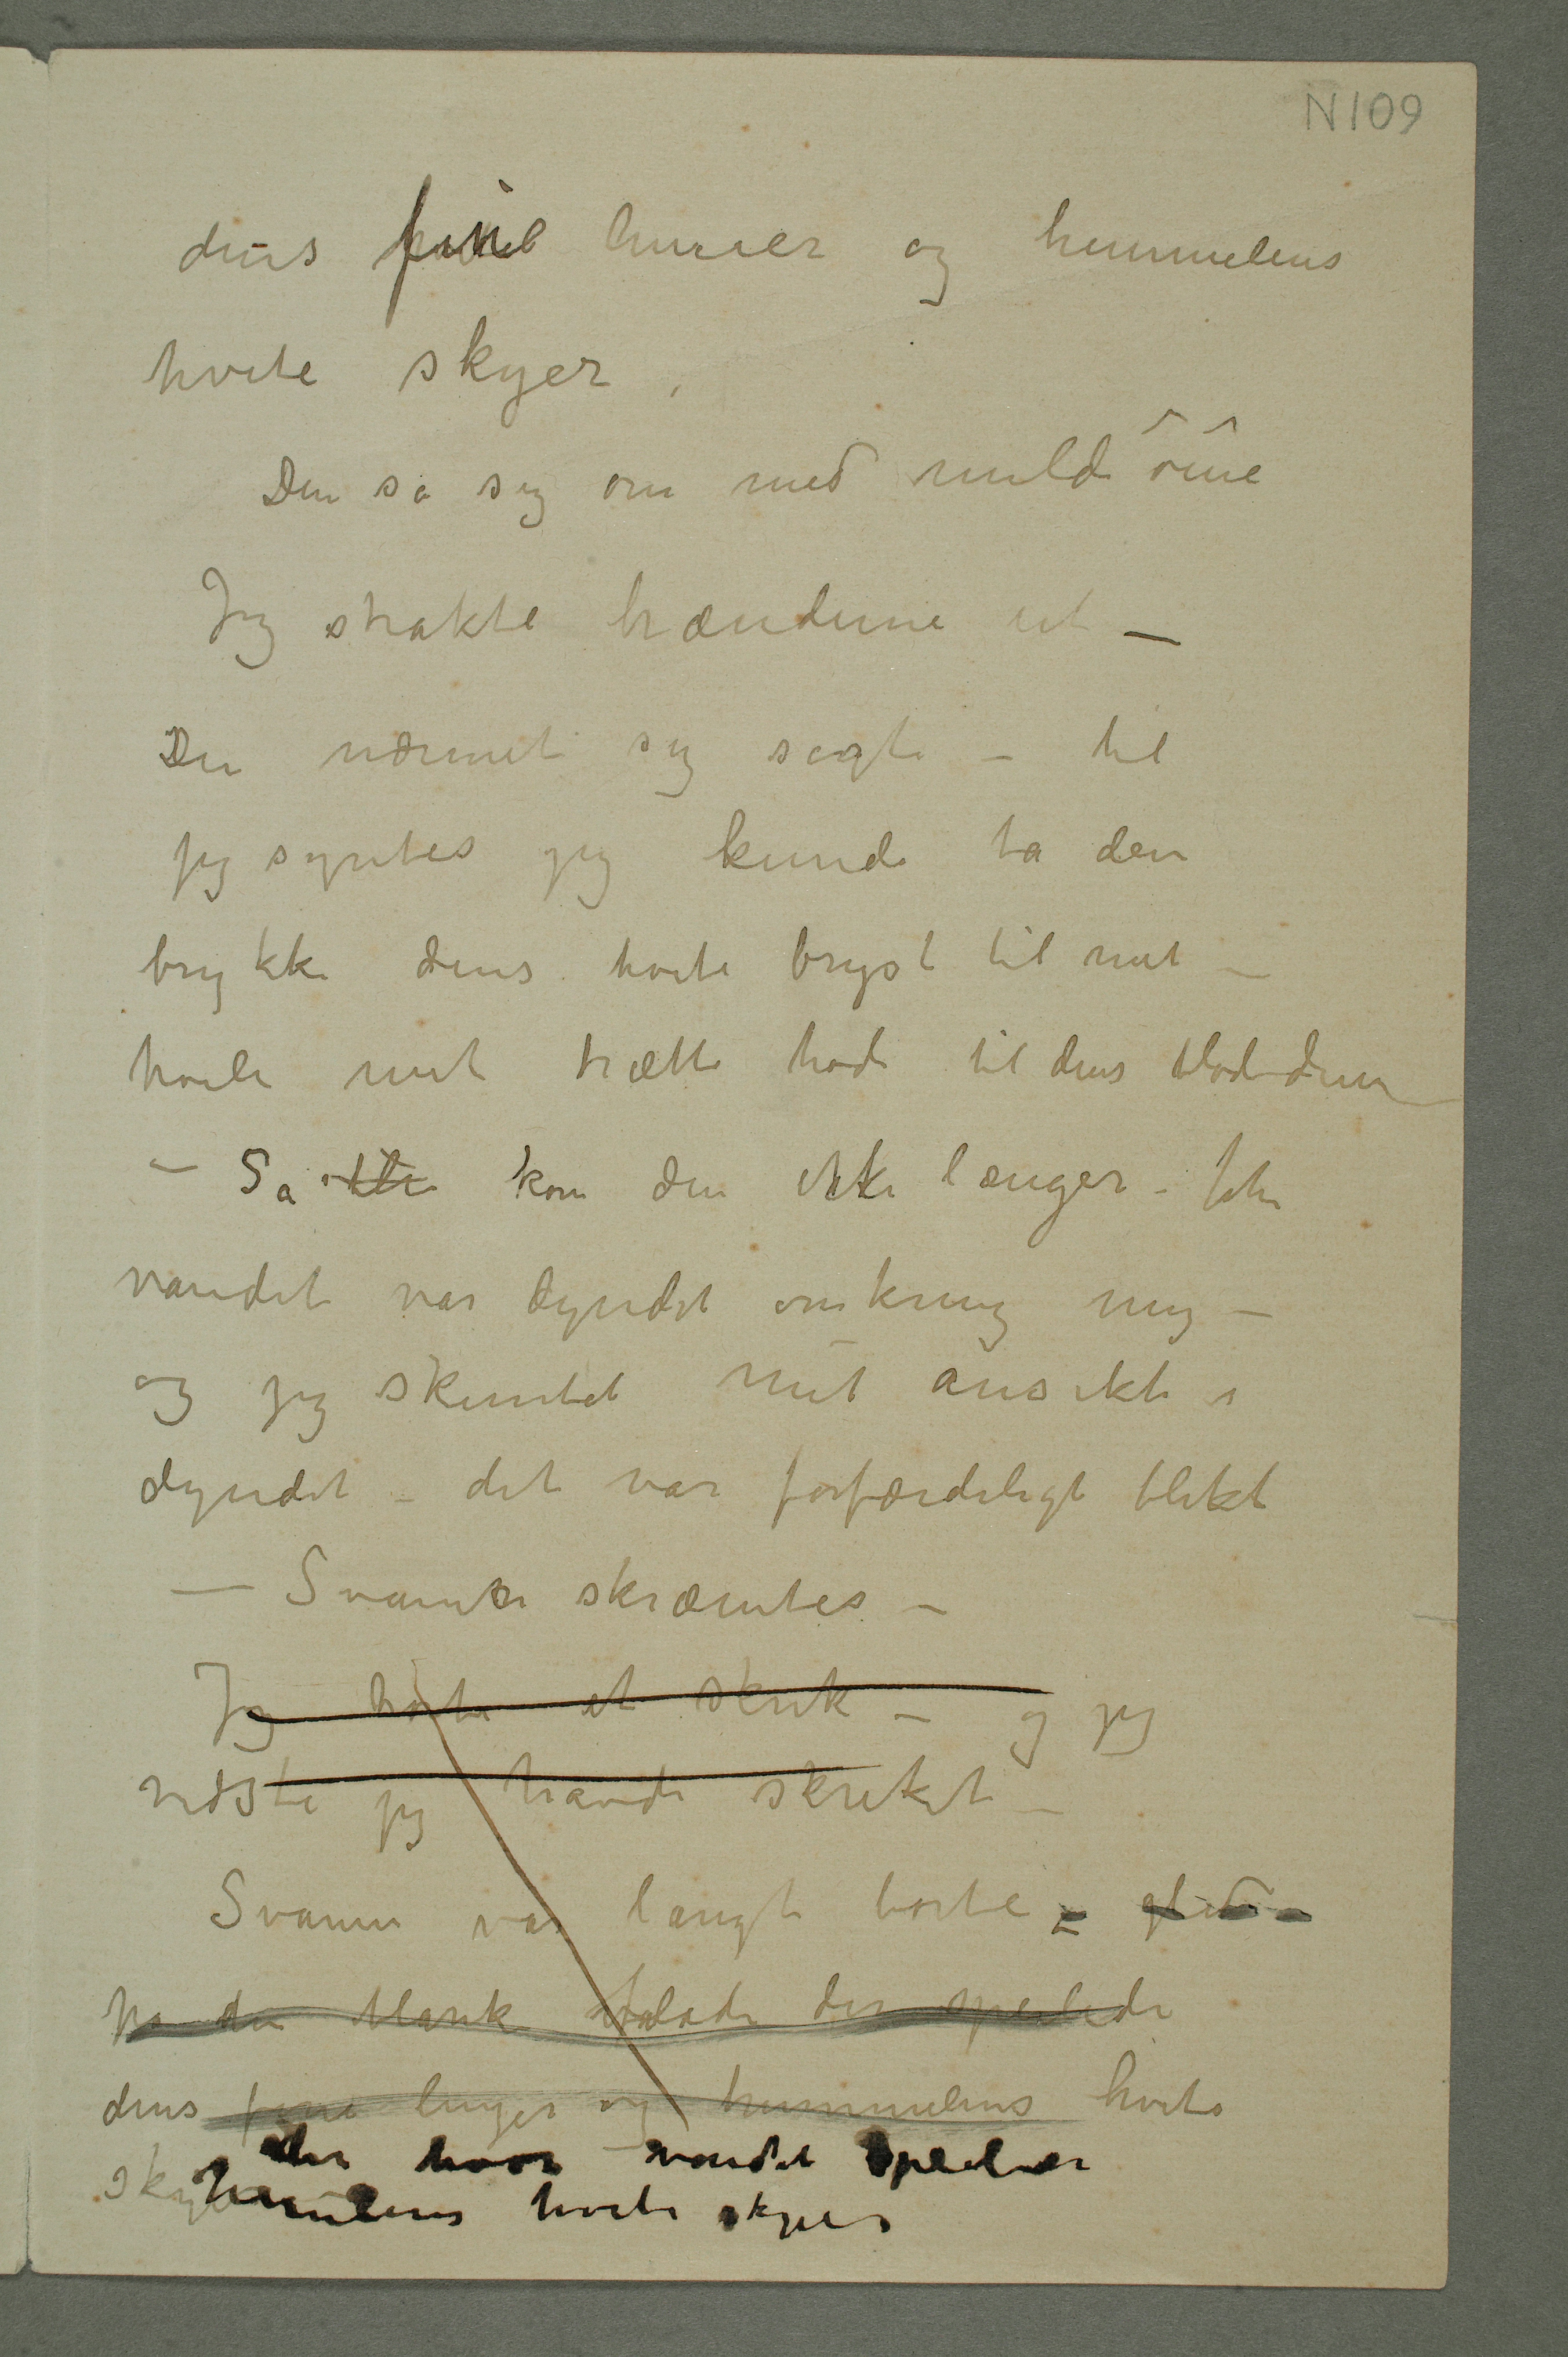 N 109
dens fine linier og himmelens
hvite skyer.
Den så sig om med milde öine
Jeg strakte hænderne ut –
Den nærmet sig sagte – til
jeg syntes jeg kunde ta den
trykke dens hvite bryst til mit –
hvile mit trætte hode til dens bløde dun
– Så kom den ikke længer –
vandet var dyndet omkring mig –
og jeg skimtet mit ansikt i
dyndet – det var forfærdeligt blekt
– Svanen skræmtes –
Jeg hørte et skrik – og jeg
vidste jeg havde skreket –
Svanen var langt borte –
på den blank der speilede
dens fine linjer og himmelens hvite
der hvor vandet speiler
skyer himlens hvite skyer